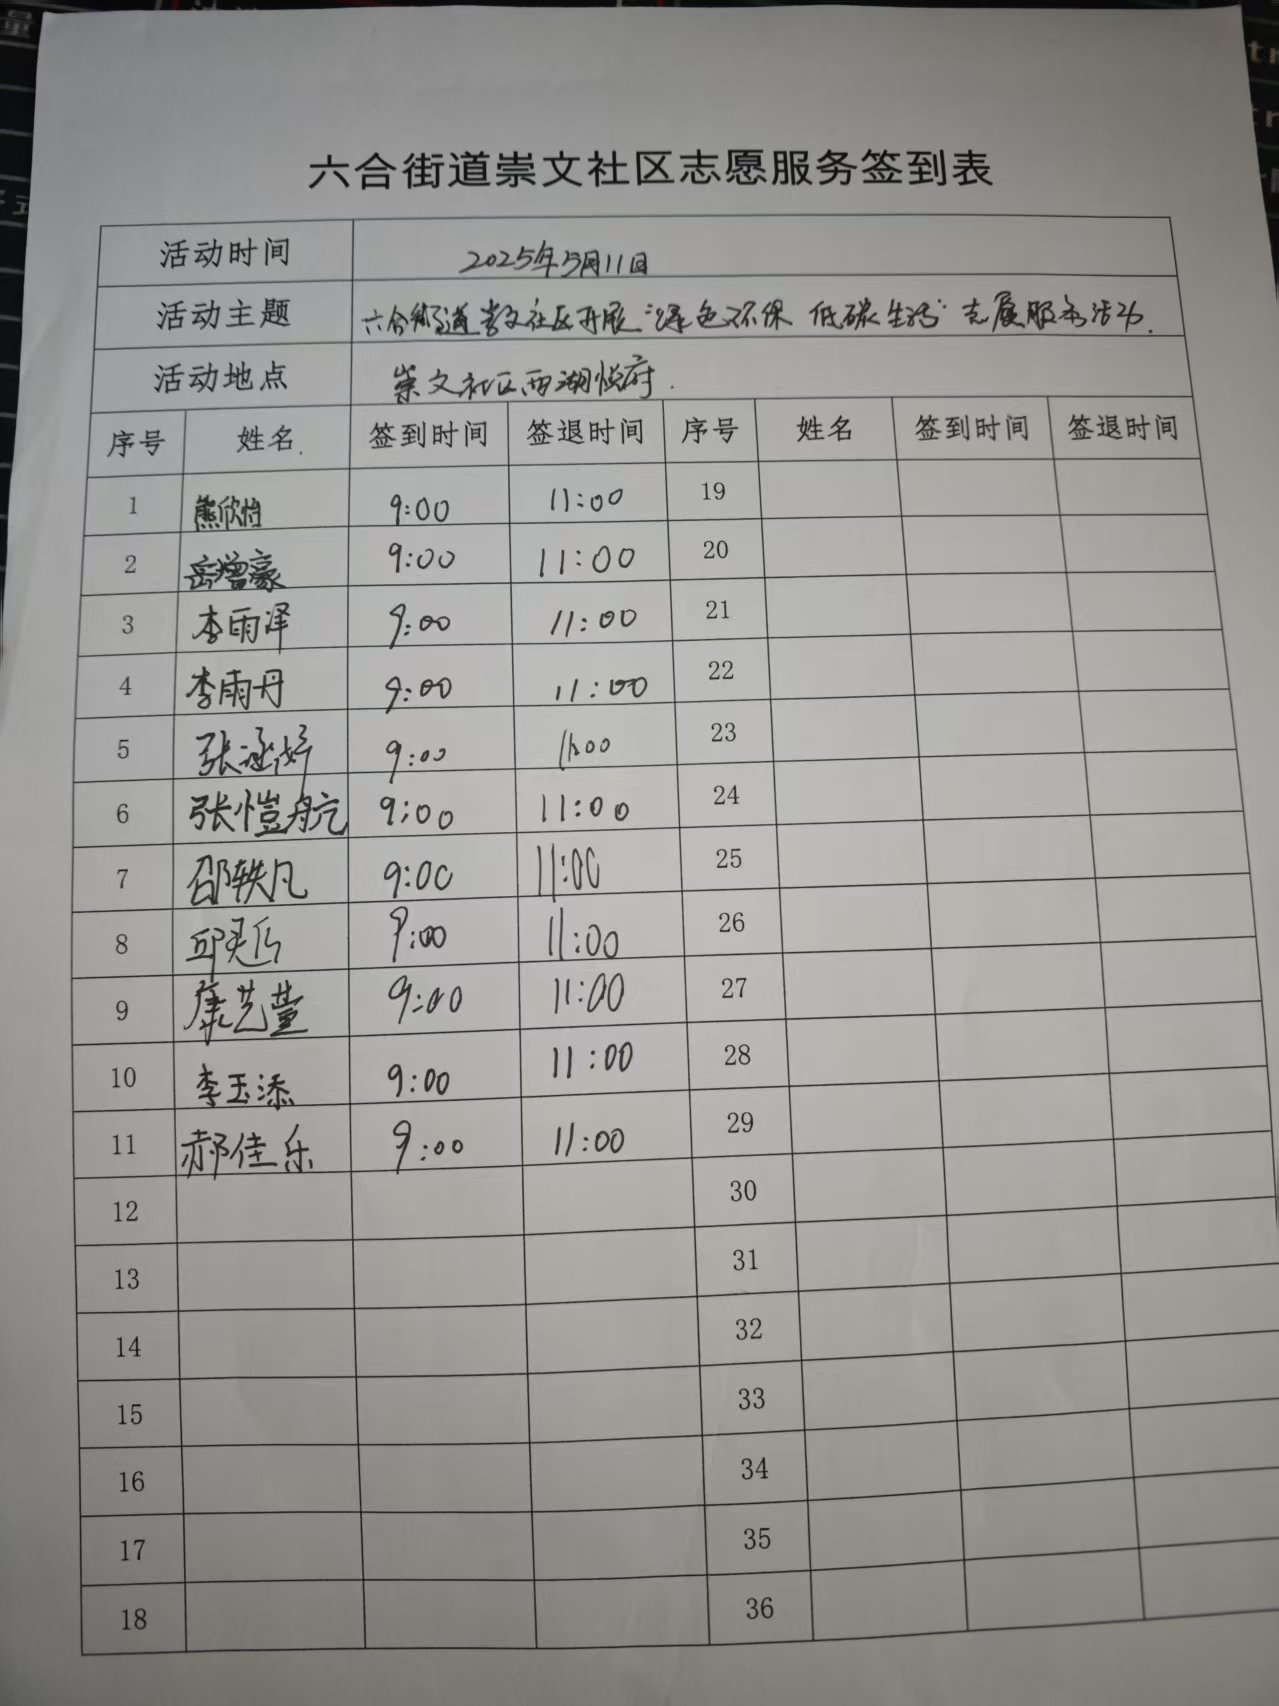 六合街道崇文社区志愿服务签到表
活动时间 2025年5月11日
活动主题 六合街道崇文社区开展"绿色环保 低碳生活"志愿服务活动.
活动地点 崇文社区西湖悦府.
序号 姓名 签到时间 签退时间 序号 姓名 签到时间 签退时间
1 熊欣怡 9:00 11:00 19
2 岳增豪 9:00 11:00 20
3 李雨泽 9:00 11:00 21
4 李雨丹 9:00 11:00 22
5 张涵婷 9:00 11:00 23
6 张恺航 9:00 11:00 24
7 邵轶凡 9:00 11:00 25
8 邱 9:00 11:00 26
9 康艺萱 9:00 11:00 27
10 李玉添 9:00 11:00 28
11 郝佳乐 9:00 11:00 29
12 30
13 31
14 32
15 33
16 34
17 35
18 36